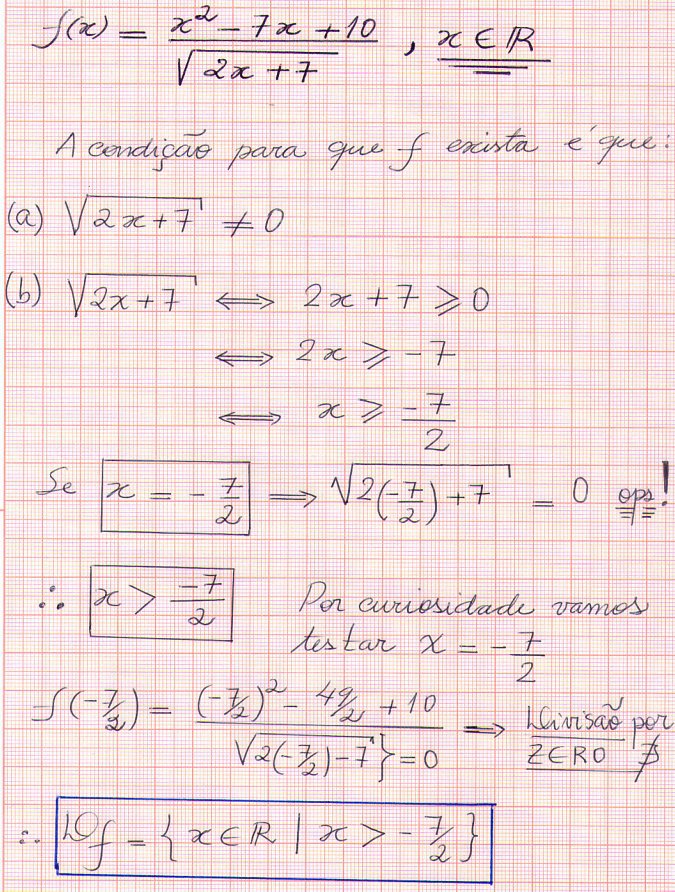 f(x) = (x² - 7x + 10) / √(2x + 7) , x ∈ ℝ
A condição para que f exista é que:
(a) √(2x + 7) ≠ 0
(b) √(2x + 7) ⟺ 2x + 7 ⩾ 0
⟺ 2x ⩾ -7
⟺ x ⩾ -7/2
Se x = -7/2 ⟹ √(2(-7/2) + 7) = 0 ops!
∴ x > -7/2
Por curiosidade vamos
testar x = -7/2
f(-7/2) = ((-7/2)² - 49/2 + 10) / √(2(-7/2) - 7) } = 0 ⟹ Divisão por
ZERO ∄
∴ Df = { x ∈ ℝ | x > -7/2 }